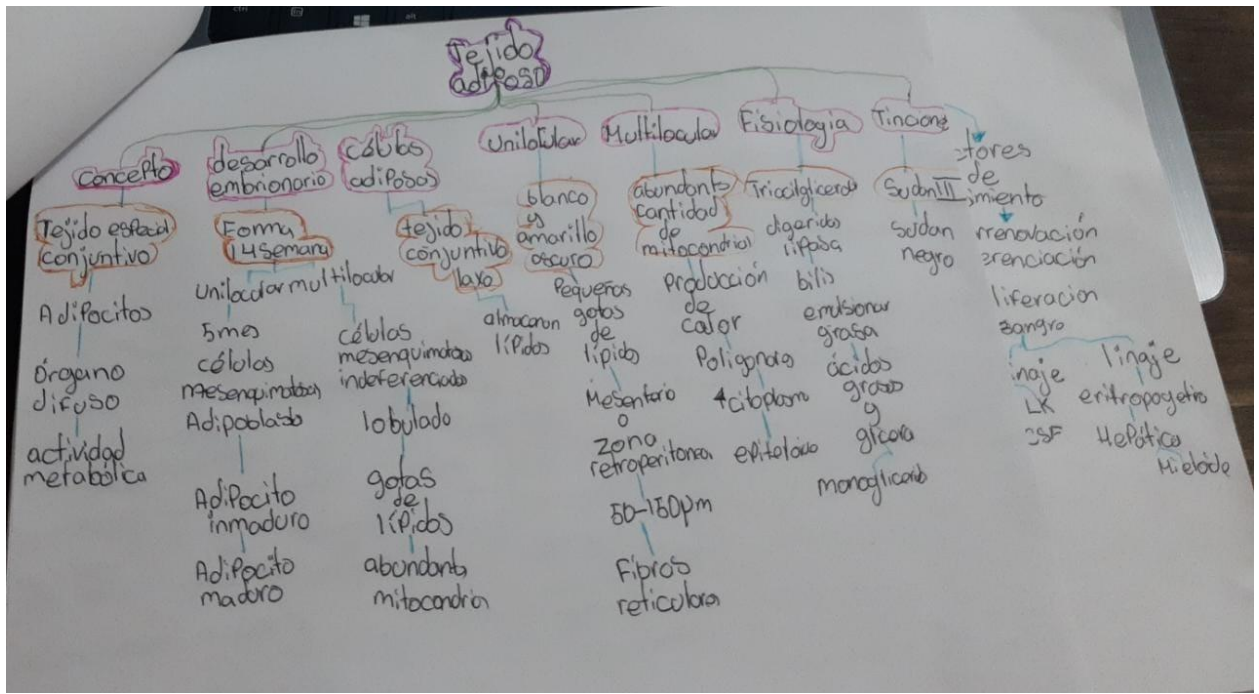 Tejido
adiposo
Concepto
Tejido especial
conjuntivo
Adipocitos
Órgano
difuso
actividad
metabólica
desarrollo
embrionario
Forma
14 semana
Unilocular multilocular
5 mes
células
mesenquimatosas
Adipoblasto
Adipocito
inmaduro
Adipocito
maduro
células
mesenquimatosas
indeferenciadas
lobulado
gotas
de
lípidos
abundante
mitocondria
células
adiposas
tejido
conjuntivo
laxo
almacenan
lípidos
Unilocular
blanco
y
amarillo
oscuro
Pequeñas
gotas
de
lípidos
Mesenterio
o
zona
retroperitonea
50-150µm
Fibras
reticulares
Multilocular
abundante
cantidad
de
mitocondrias
Producción
de
calor
Poligonares
citoplasma
epitelio
Fisiología
Triacilgliceroles
digeridos
lipasa
bilis
emulsionar
grasa
ácidos
grasos
y
monoglicerido
Tincione
Sudan III
sudan
negro
tores
de
imiento
renovación
erenciación
liferacion
sangre
inaje
LK
CSF
linaje
eritropoyetio
Hepática
Mieloide